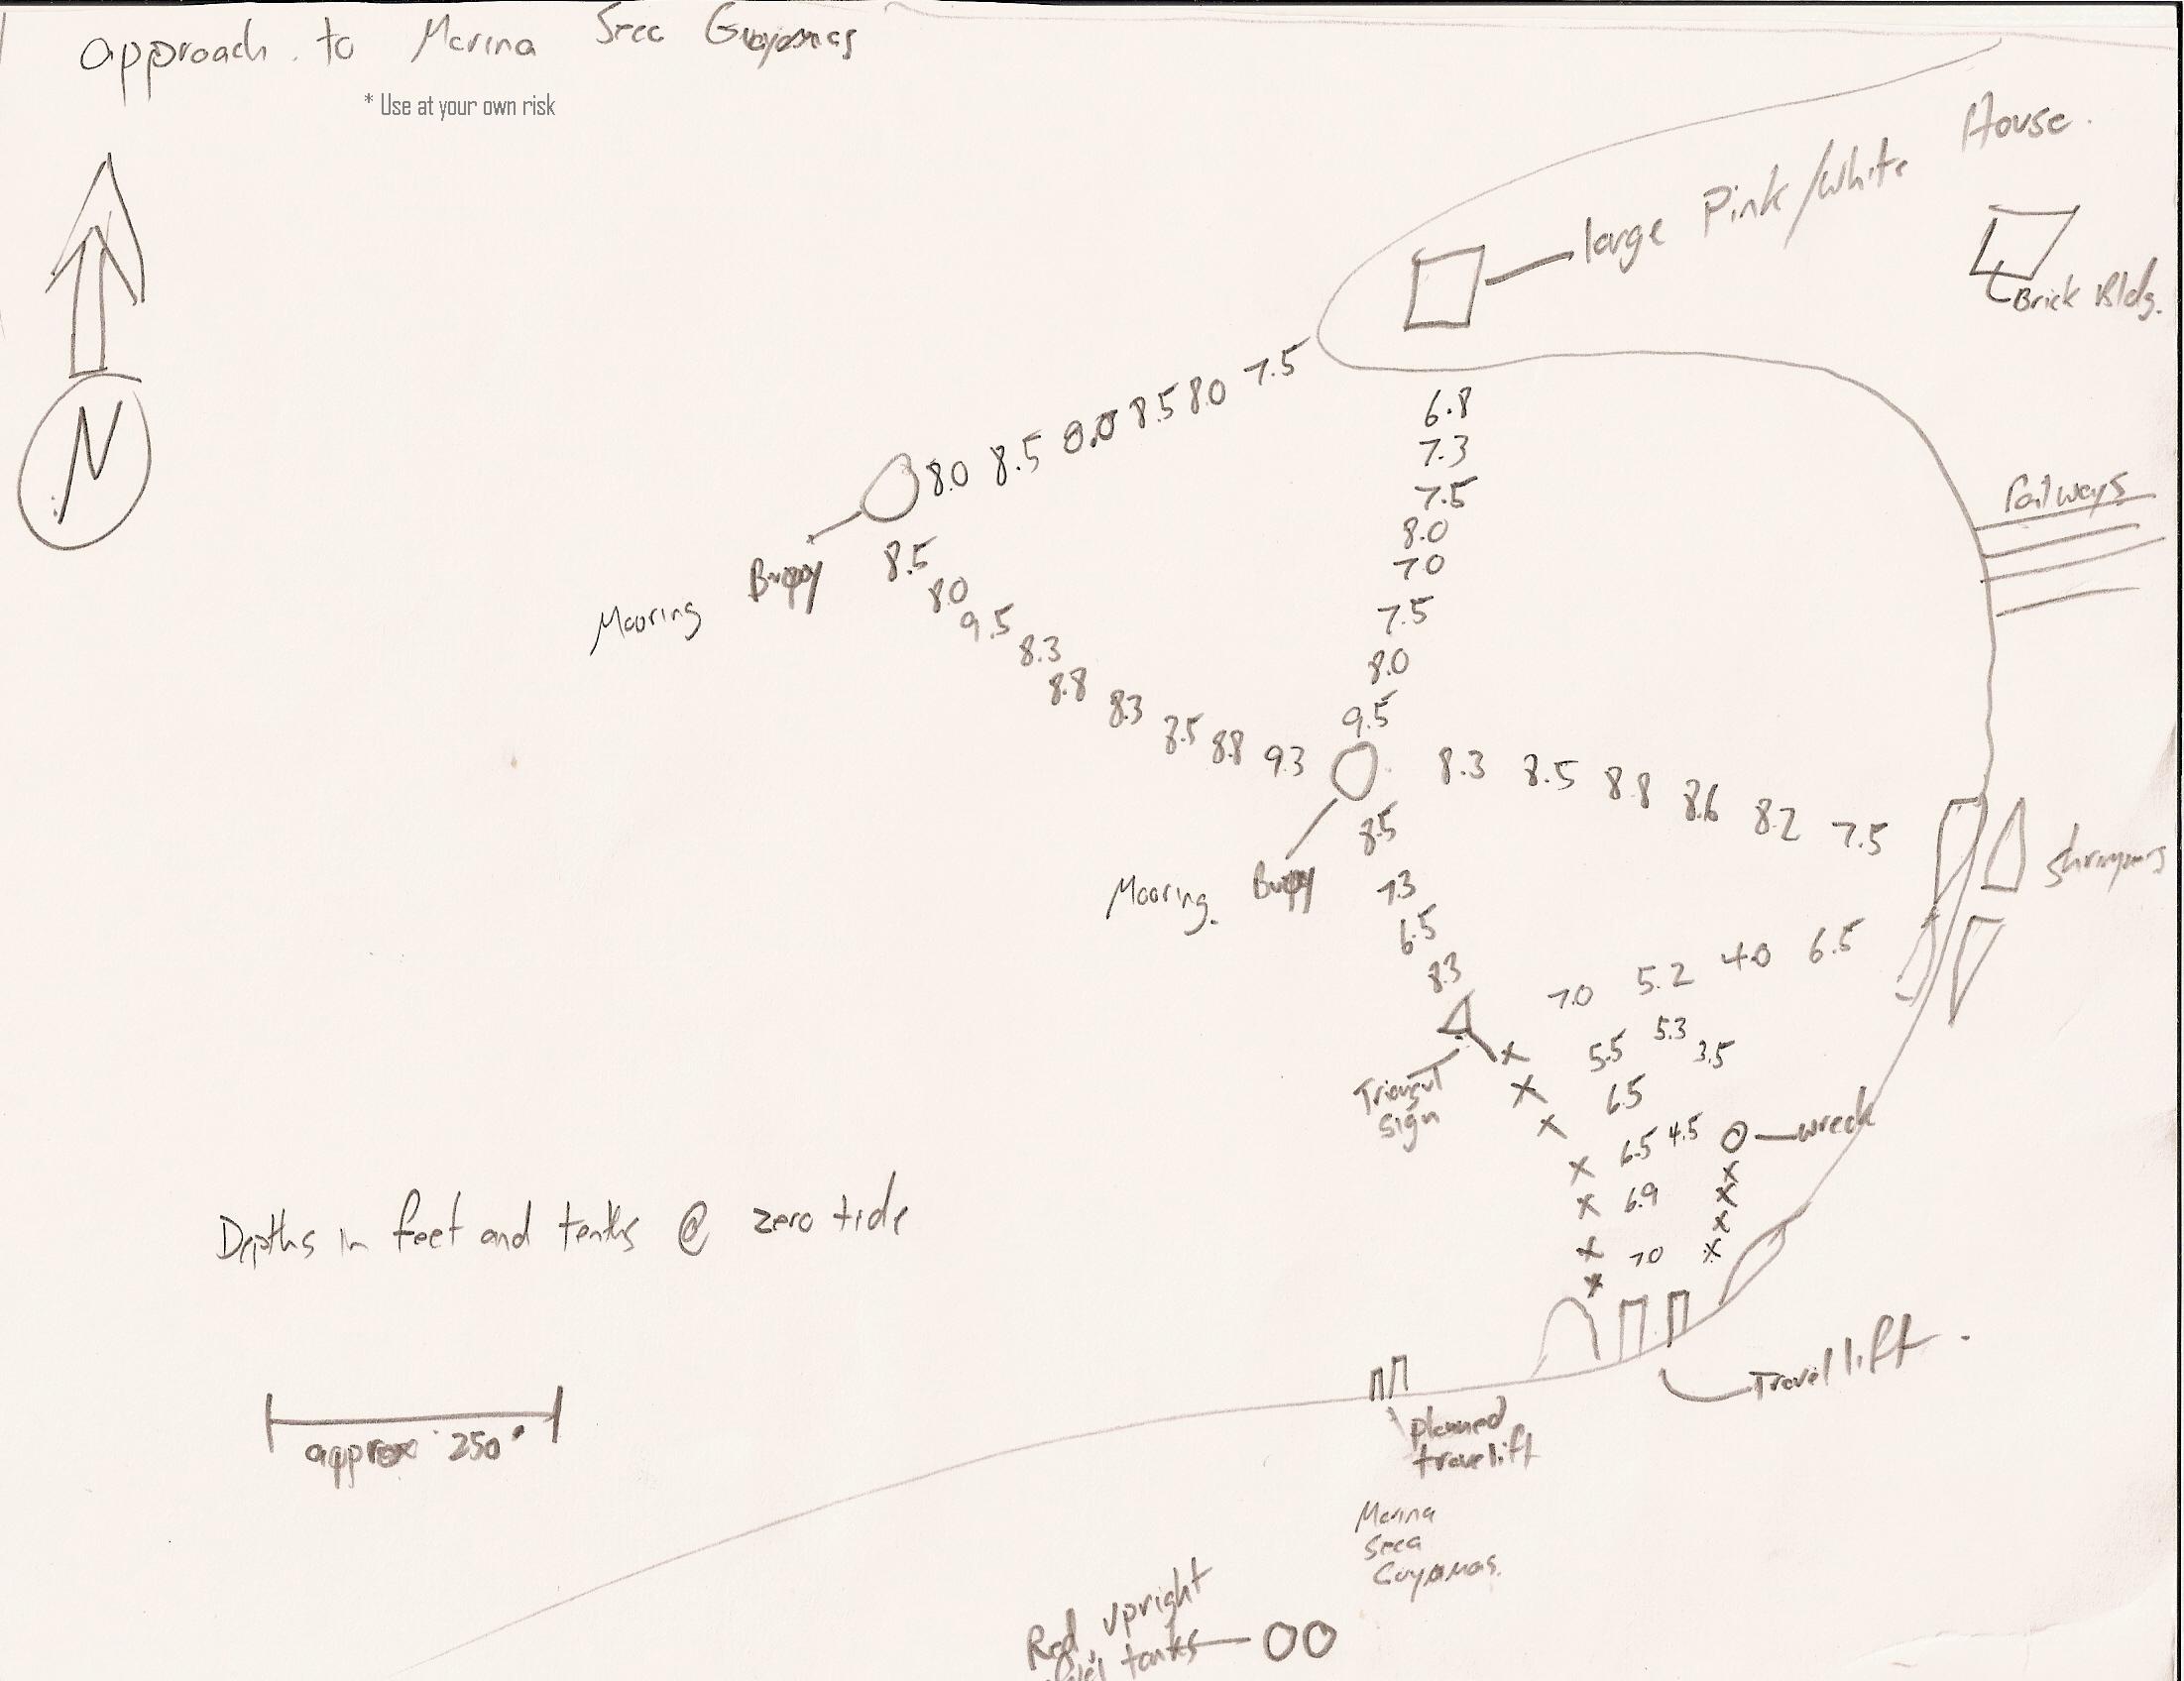 approach to Marina Seca Guaymas
* Use at your own risk
House.
large Pink/White
Brick Bldg.
N
Railways
7.5
8.0
8.5
8.0
8.5
8.0
6.8
7.3
7.5
8.0
7.0
7.5
8.0
9.5
Mooring Buoy
8.5
8.0
9.5
8.3
8.8
8.3
8.5
8.8
9.3
8.3 8.5 8.8 8.6 8.2 7.5
Shrimpers
Mooring Buoy
8.5
7.3
6.5
8.3
7.0 5.2 4.0 6.5
5.5 5.3 3.5
6.5
Triangul
Sign
6.5 4.5
wreck
6.9
7.0
Depths in feet and tenths @ zero tide
Travel lift.
approx 250'
planned
travelift
Marina
Seca
Guyamas.
Red upright
fuel tanks